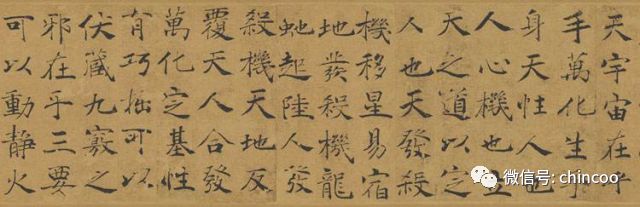 天宇宙在乎
手萬化生乎
身天性人也
人心機也立
天之道以定
人也天發殺
機移星易宿
地發殺機龍
虵起陸人發
殺機天地反
覆天人合發
萬化定基性
有巧拙可以
伏藏九竅之
邪在乎三要
可以動靜火
微信号: chincoo